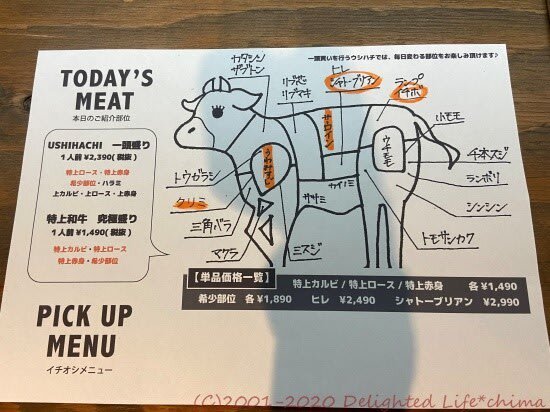 一頭買いを行うウシハチでは、毎日変わる部位をお楽しみ頂けます♪
TODAY'S
MEAT
本日のご紹介部位
USHIHACHI 一頭盛り
1人前 ¥2,390(税抜)
特上ロース・特上赤身
希少部位・ハラミ
上カルビ・上ロース・上赤身
特上和牛 究極盛り
1人前 ¥1,490(税抜)
特上カルビ・特上ロース
特上赤身・希少部位
カタシン
ザブトン
リブシン
リブマキ
ヒレ
シャトーブリアン
ランプ
イチボ
サーロイン
ウチモモ
トモモ
千本スジ
ランボソ
シンシン
トモサンカク
うわみすじ
トウガラシ
クリミ
三角バラ
マクラ
ミスジ
ササミ
カイノミ
【単品価格一覧】
特上カルビ/特上ロース/特上赤身 各¥1,490
希少部位 各¥1,890 ヒレ ¥2,490 シャトーブリアン ¥2,990
PICK UP
MENU
イチオシメニュー
(C)2001-2020 Delighted Life*chima